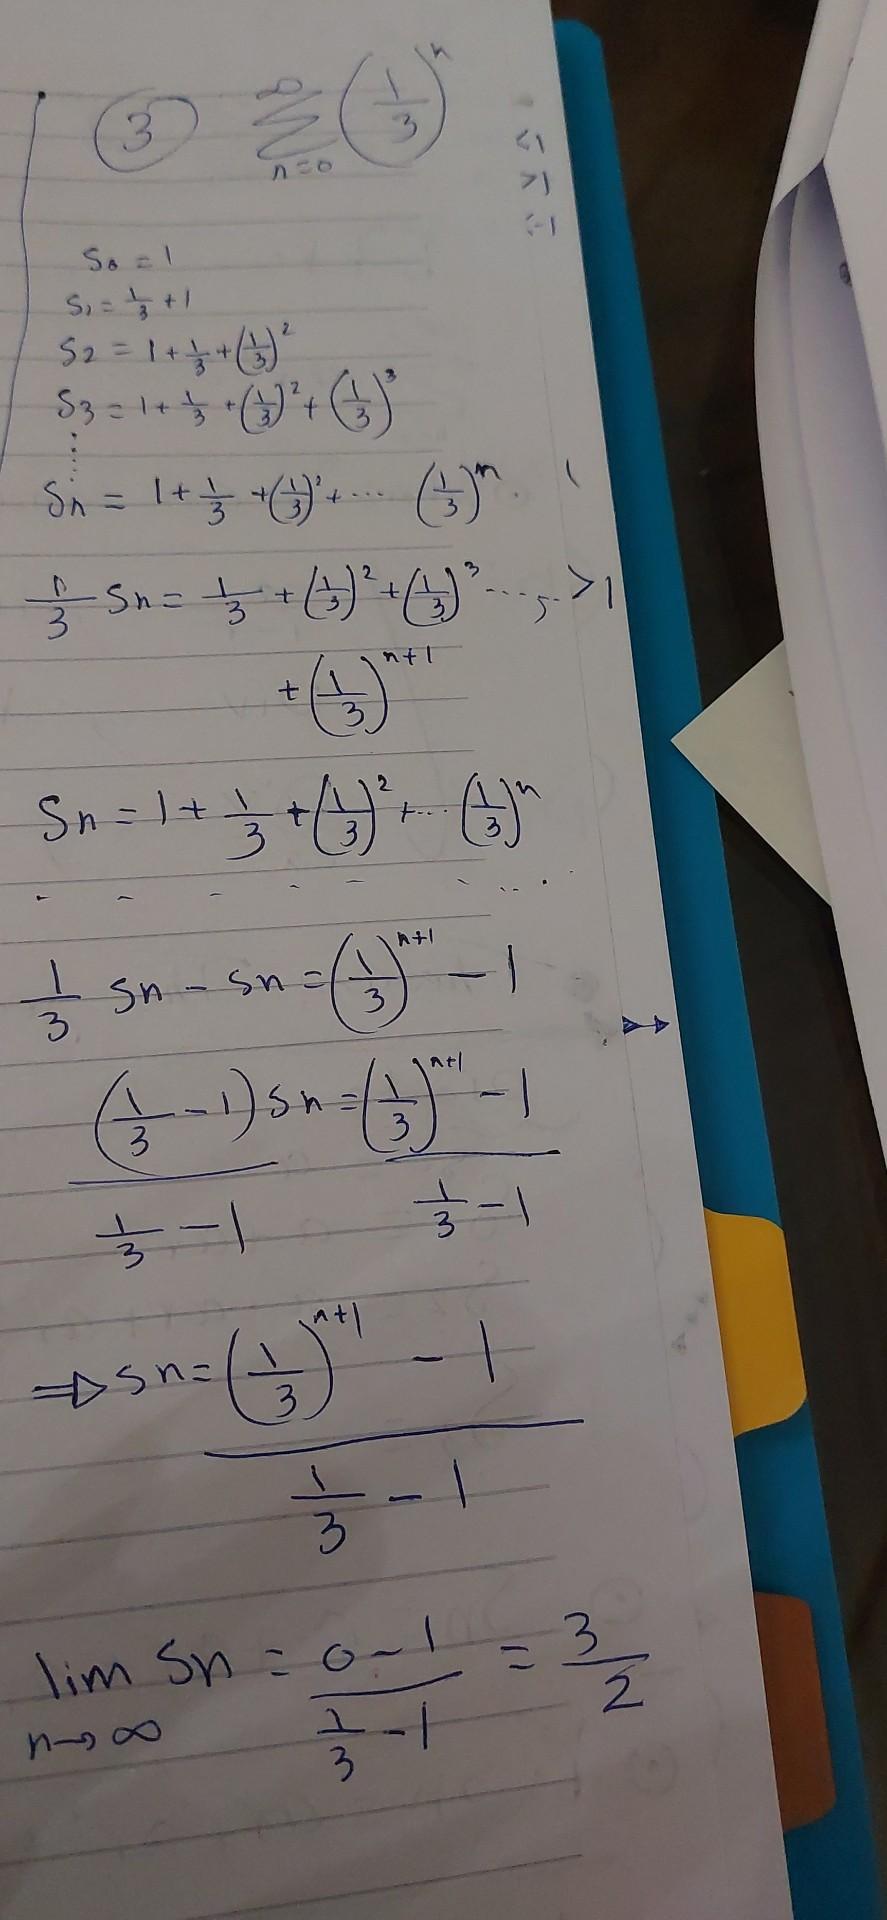 ③ ∞ Σ n=0 (1/3)^n
<1
>1
=1
S₀ = 1
S₁ = 1/3 + 1
S2 = 1 + 1/3 + (1/3)²
S3 = 1 + 1/3 + (1/3)² + (1/3)³
Sn = 1 + 1/3 + (1/3)² + ... (1/3)^n
1/3 Sn = 1/3 + (1/3)² + (1/3)³ ..... >1
+ (1/3)^n+1
Sn = 1 + 1/3 + (1/3)² + ... (1/3)^n
1/3 Sn - Sn = (1/3)^n+1 - 1
(1/3 - 1) Sn = (1/3)^n+1 - 1
1/3 - 1 1/3 - 1
⇒ Sn = (1/3)^n+1 - 1
1/3 - 1
lim Sn = 0 - 1 = 3/2
n→∞ 1/3 - 1